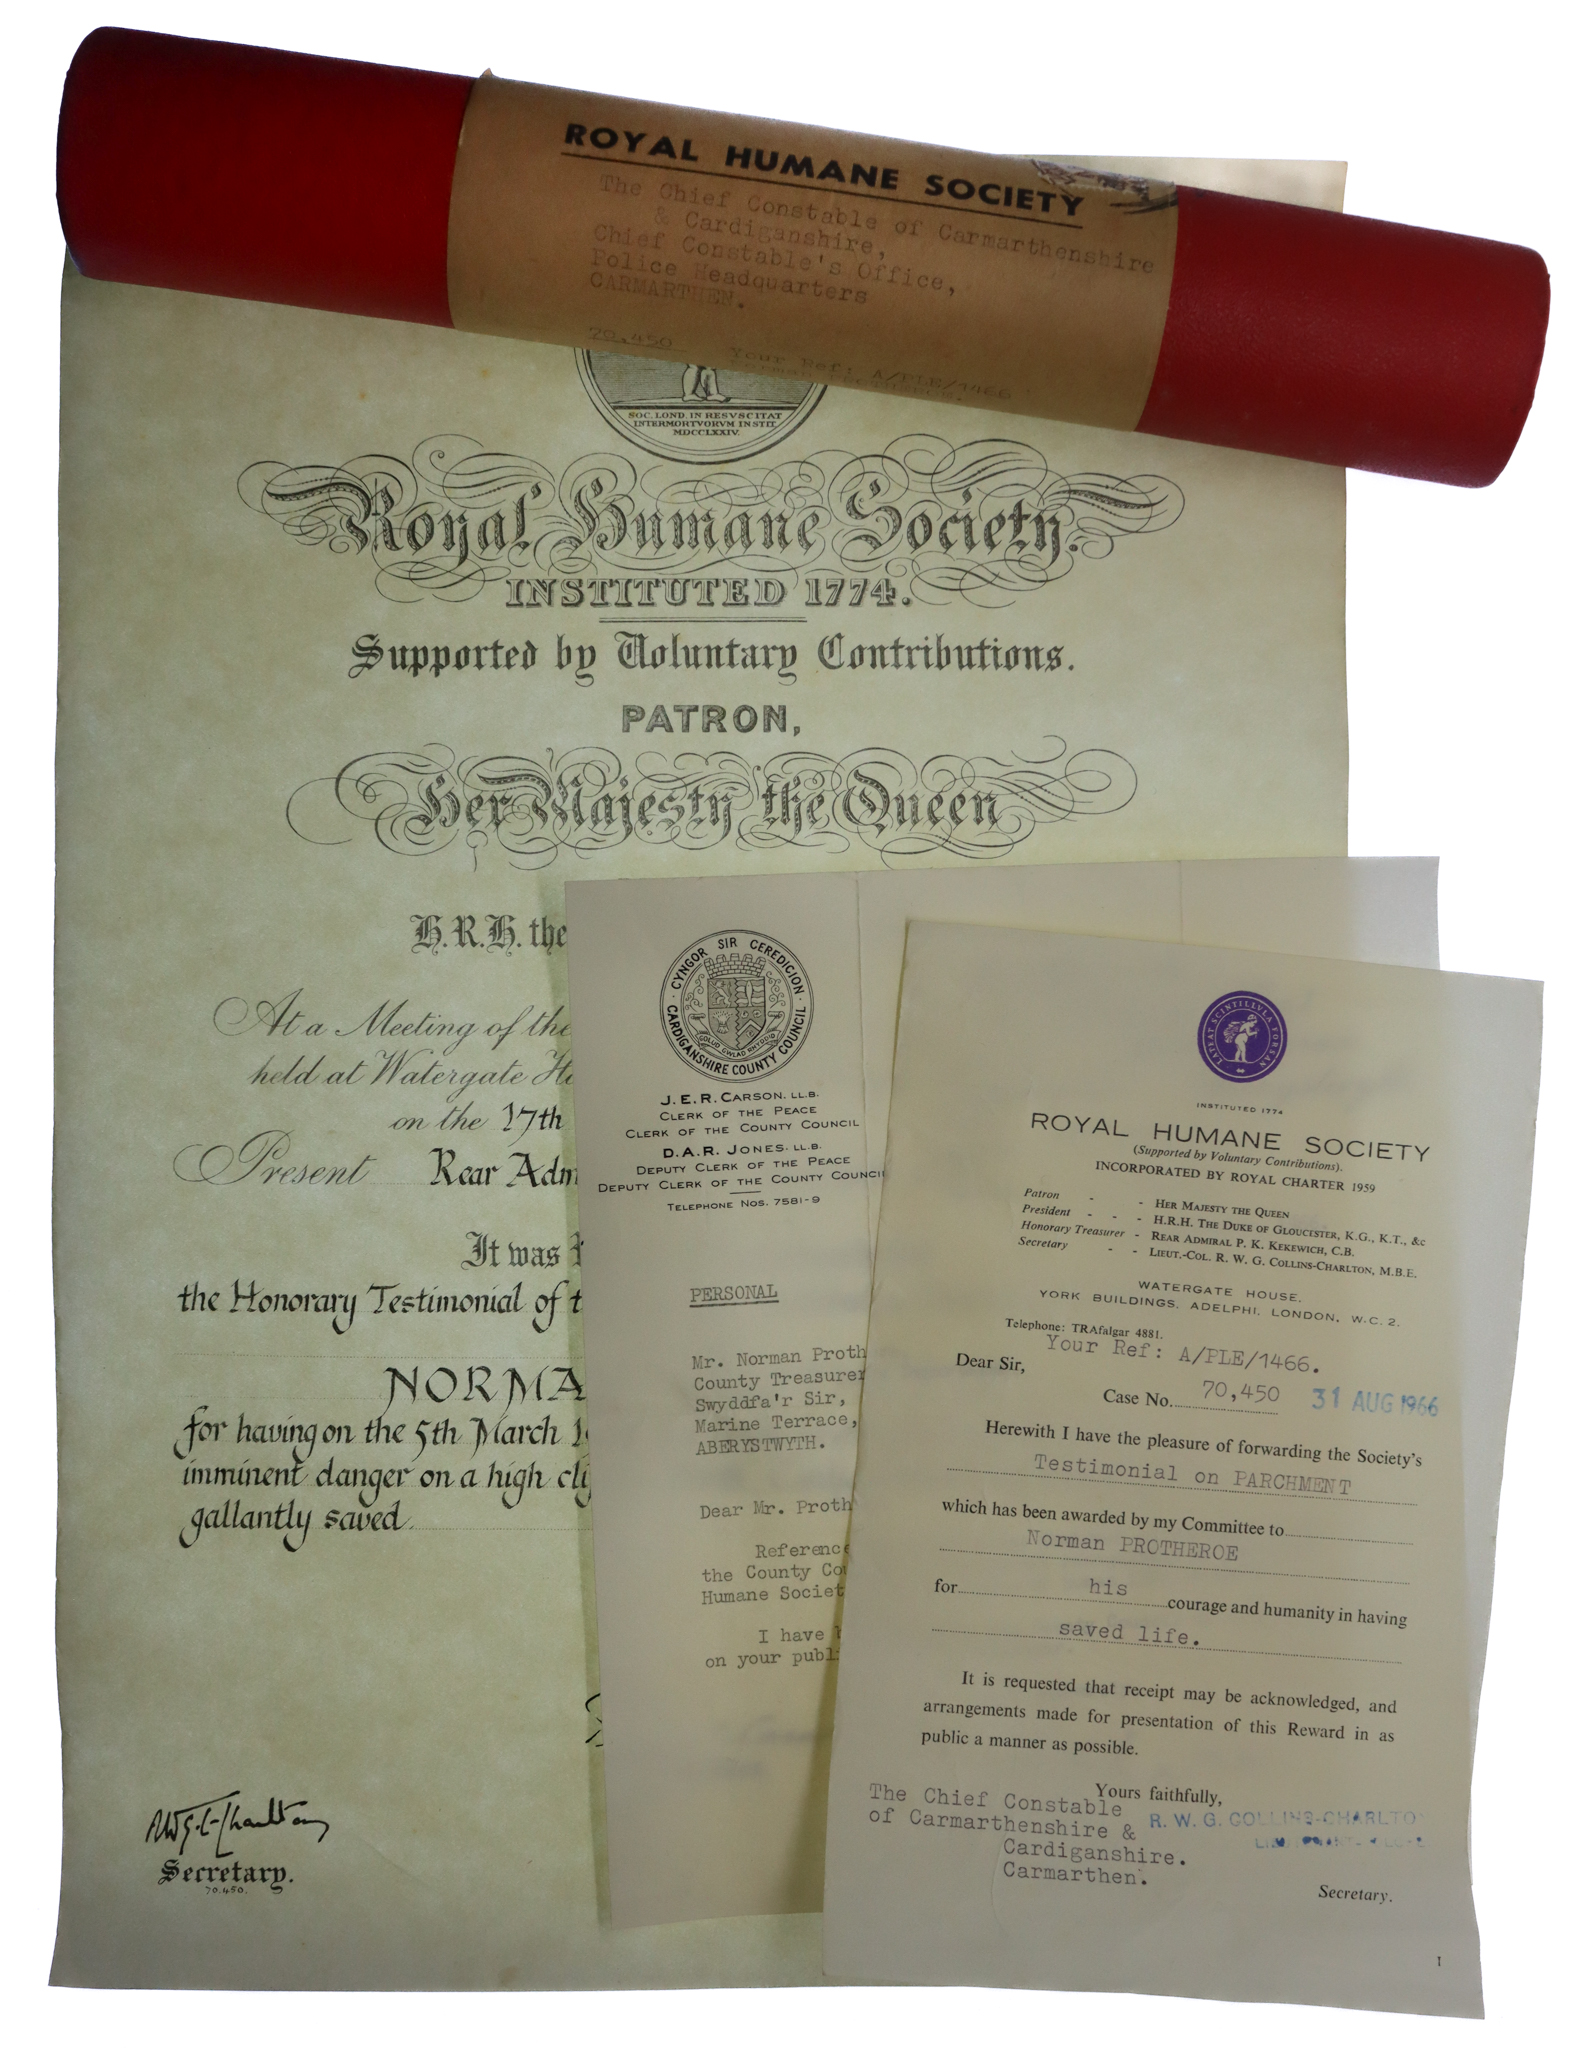 ROYAL HUMANE SOCIETY
The Chief Constable of Carmarthenshire
& Cardiganshire,
Chief Constable's Office,
Police Headquarters
CARMARTHEN.
70,450 Your Ref: A/PLE/1466
SOC. LOND. IN RESVSCITAT
INTERMORTVORVM INSTIT
MDCCLXXIV.
Royal Humane Society.
INSTITUTED 1774.
Supported by Voluntary Contributions.
PATRON,
Her Majesty the Queen
H.R.H. the
At a Meeting of the
held at Watergate
on the 17th
Present Rear Adm
It was
the Honorary Testimonial of
NORMA
for having on the 5th March
imminent danger on a high
gallantly saved
Secretary.
70.450.
CYNGOR SIR CEREDIGION
CARDIGANSHIRE COUNTY COUNCIL
GOLUD GWLAD RHYDDID
J.E.R. CARSON. LL.B.
CLERK OF THE PEACE
CLERK OF THE COUNTY COUNCIL
D.A.R. JONES. LL.B.
DEPUTY CLERK OF THE PEACE
DEPUTY CLERK OF THE COUNTY COUNCIL
TELEPHONE NOS. 7581-9
PERSONAL
Mr. Norman Proth
County Treasurer
Swyddfa'r Sir,
Marine Terrace,
ABERYSTWYTH.
Dear Mr. Proth
Reference
the County Cou
Humane Societ
I have
on your publ
LATEAT SCINTILLVLA FORSAN
INSTITUTED 1774
ROYAL HUMANE SOCIETY
(Supported by Voluntary Contributions).
INCORPORATED BY ROYAL CHARTER 1959
Patron - - HER MAJESTY THE QUEEN
President - - - H.R.H. THE DUKE OF GLOUCESTER, K.G., K.T., &c
Honorary Treasurer - REAR ADMIRAL P. K. KEKEWICH, C.B.
Secretary - - LIEUT.-COL. R. W. G. COLLINS-CHARLTON, M.B.E.
WATERGATE HOUSE,
YORK BUILDINGS, ADELPHI, LONDON, W.C. 2.
Telephone: TRAfalgar 4881.
Your Ref: A/PLE/1466.
Dear Sir,
Case No. 70,450 31 AUG 1966
Herewith I have the pleasure of forwarding the Society's
Testimonial on PARCHMENT
which has been awarded by my Committee to
Norman PROTHEROE
for his courage and humanity in having
saved life.
It is requested that receipt may be acknowledged, and
arrangements made for presentation of this Reward in as
public a manner as possible.
Yours faithfully,
The Chief Constable
of Carmarthenshire &
Cardiganshire.
Carmarthen.
R. W. G. COLLINS-CHARLTO
Secretary.
1